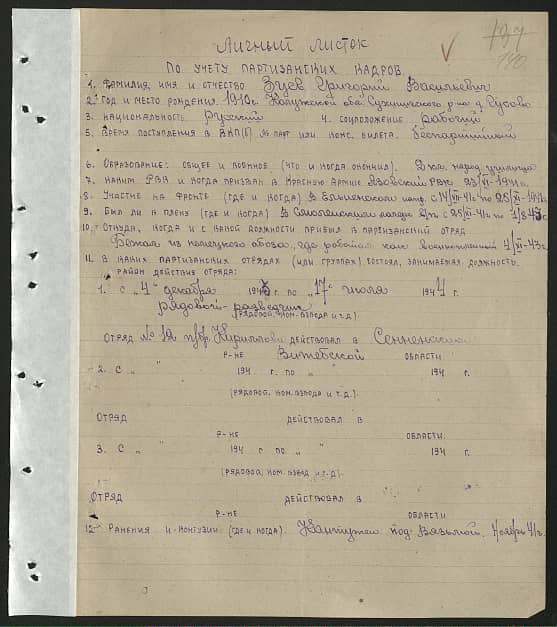 190
Личный листок
по учету партизанских кадров
1. Фамилия, имя и отчество Зуев Григорий Васильевич
2. Год и место рождения 1910г. Калужской обл. Сухиничского р-на д. Гусово
3. Национальность русский 4. Соцположение рабочий
5. Время поступления в ВКП(б) № парт или комс. билета. беспартийный
6. Образование: общее и военное (что и когда окончил). 2 кл. народ. училища
7. Каким РВК и когда призван в Красную Армию РВК 23/VI-1941г.
8. Участие на фронте (где и когда) в Ельнинском напр. с 14/VII-41г по 25/ -1941г.
9. Был ли в плену (где и когда) в Смоленском с 25/ -41г по
10. Откуда, когда и с какой должности прибыл в партизанский отряд
Бежал из немецкого обоза, где работал как военнопленный 4/XII-43г.
11. В каких партизанских отрядах (или группах) состоял, занимаемая должность,
район действия отряда:
1. С „4" декабря 1943 г. по „17" июля 1944 г.
рядовой-разведчик
(рядовой, ком. взвода и т.д.)
Отряд № 12 п/бр. Кириллова действовал в Сенненском
р-не Витебской области
2. С „ " 194 г. по „ " 194 г.
(рядовой, ком. взвода и т.д.)
Отряд действовал в
р-не области
3. С „ " 194 г. по „ " 194 г.
(рядовой, ком. взвод. и т.д.)
Отряд действовал в
р-не области
12. Ранения и контузии (где и когда). Контужен под Вязьмой. Ноябрь 41г.